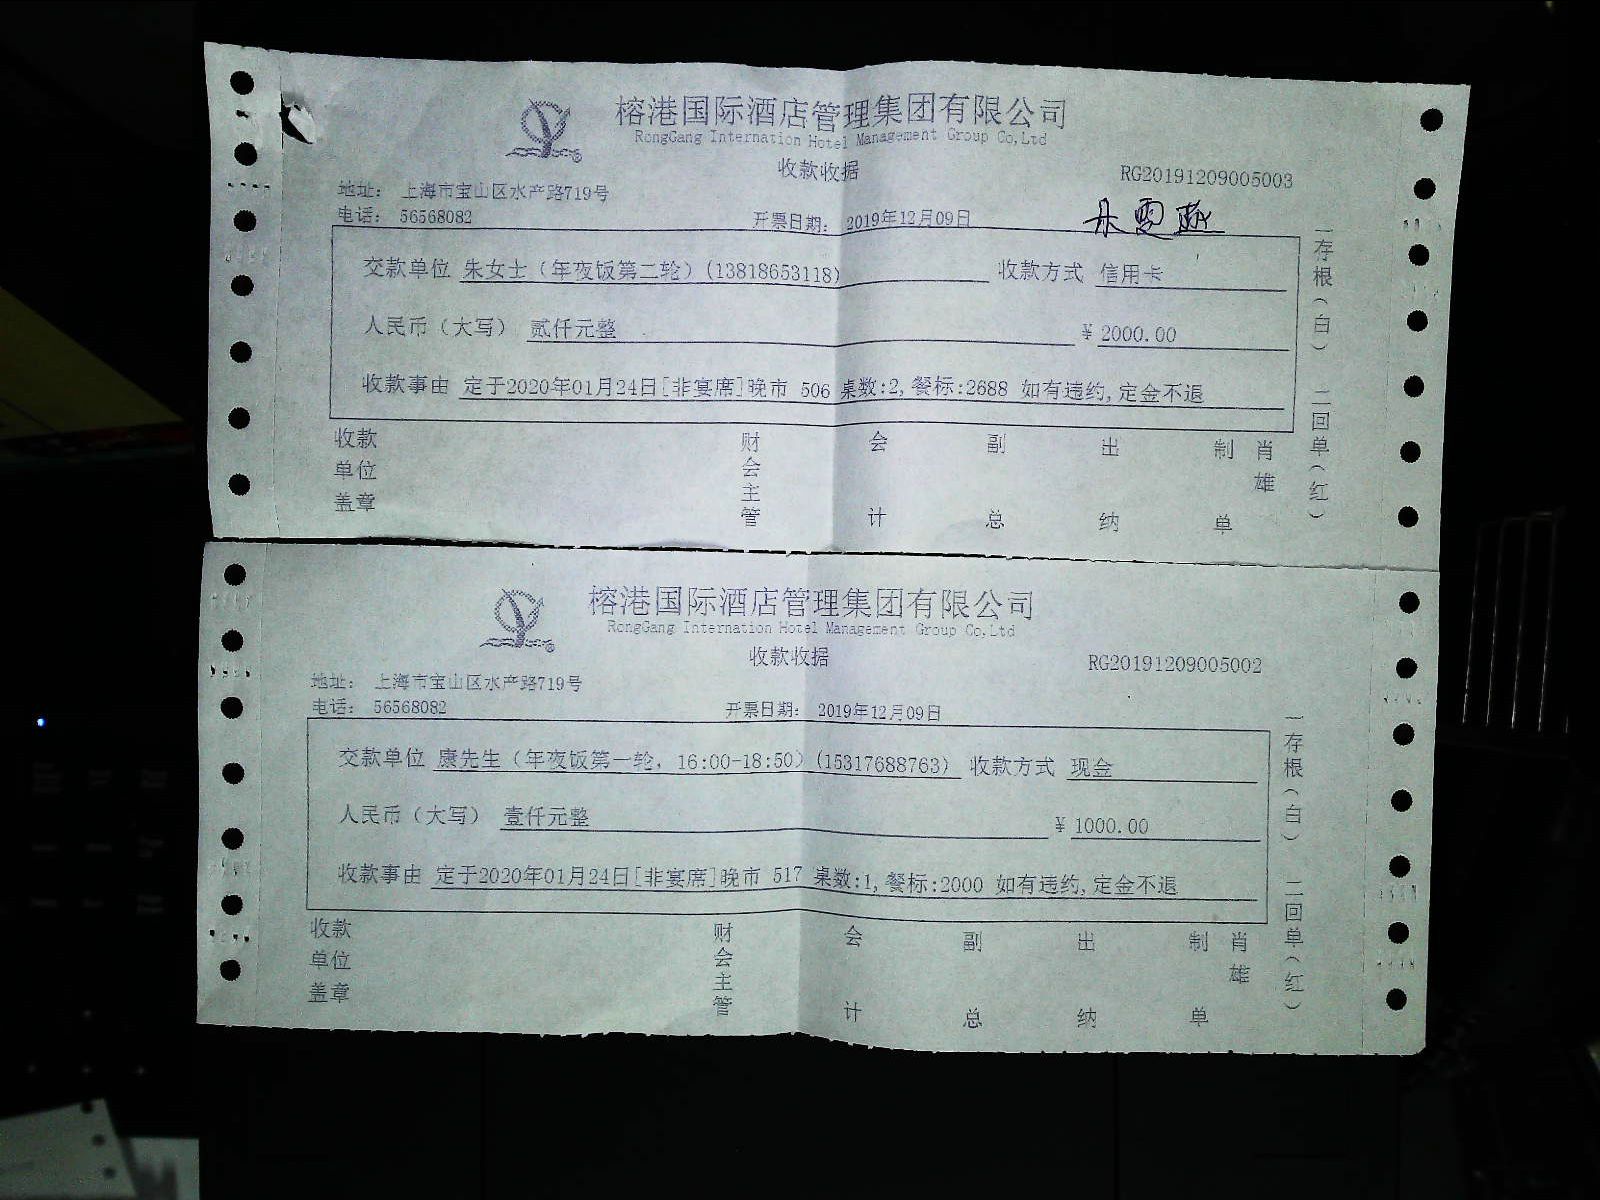 榕港国际酒店管理集团有限公司
RongGang Internation Hotel Management Group Co,Ltd
收款收据
RG20191209005003
地址: 上海市宝山区水产路719号
电话: 56568082 开票日期: 2019年12月09日
交款单位 朱女士(年夜饭第二轮)(13818653118) 收款方式 信用卡
人民币(大写) 贰仟元整 ¥2000.00
收款事由 定于2020年01月24日[非宴席]晚市 506 桌数:2,餐标:2688 如有违约,定金不退
收款单位盖章 财会主管 会计 副总 出纳 制单 肖雄
一存根(白) 二回单(红)
榕港国际酒店管理集团有限公司
RongGang Internation Hotel Management Group Co,Ltd
收款收据
RG20191209005002
地址: 上海市宝山区水产路719号
电话: 56568082 开票日期: 2019年12月09日
交款单位 康先生(年夜饭第一轮, 16:00-18:50)(15317688763) 收款方式 现金
人民币(大写) 壹仟元整 ¥1000.00
收款事由 定于2020年01月24日[非宴席]晚市 517 桌数:1,餐标:2000 如有违约,定金不退
收款单位盖章 财会主管 会计 副总 出纳 制单 肖雄
一存根(白) 二回单(红)